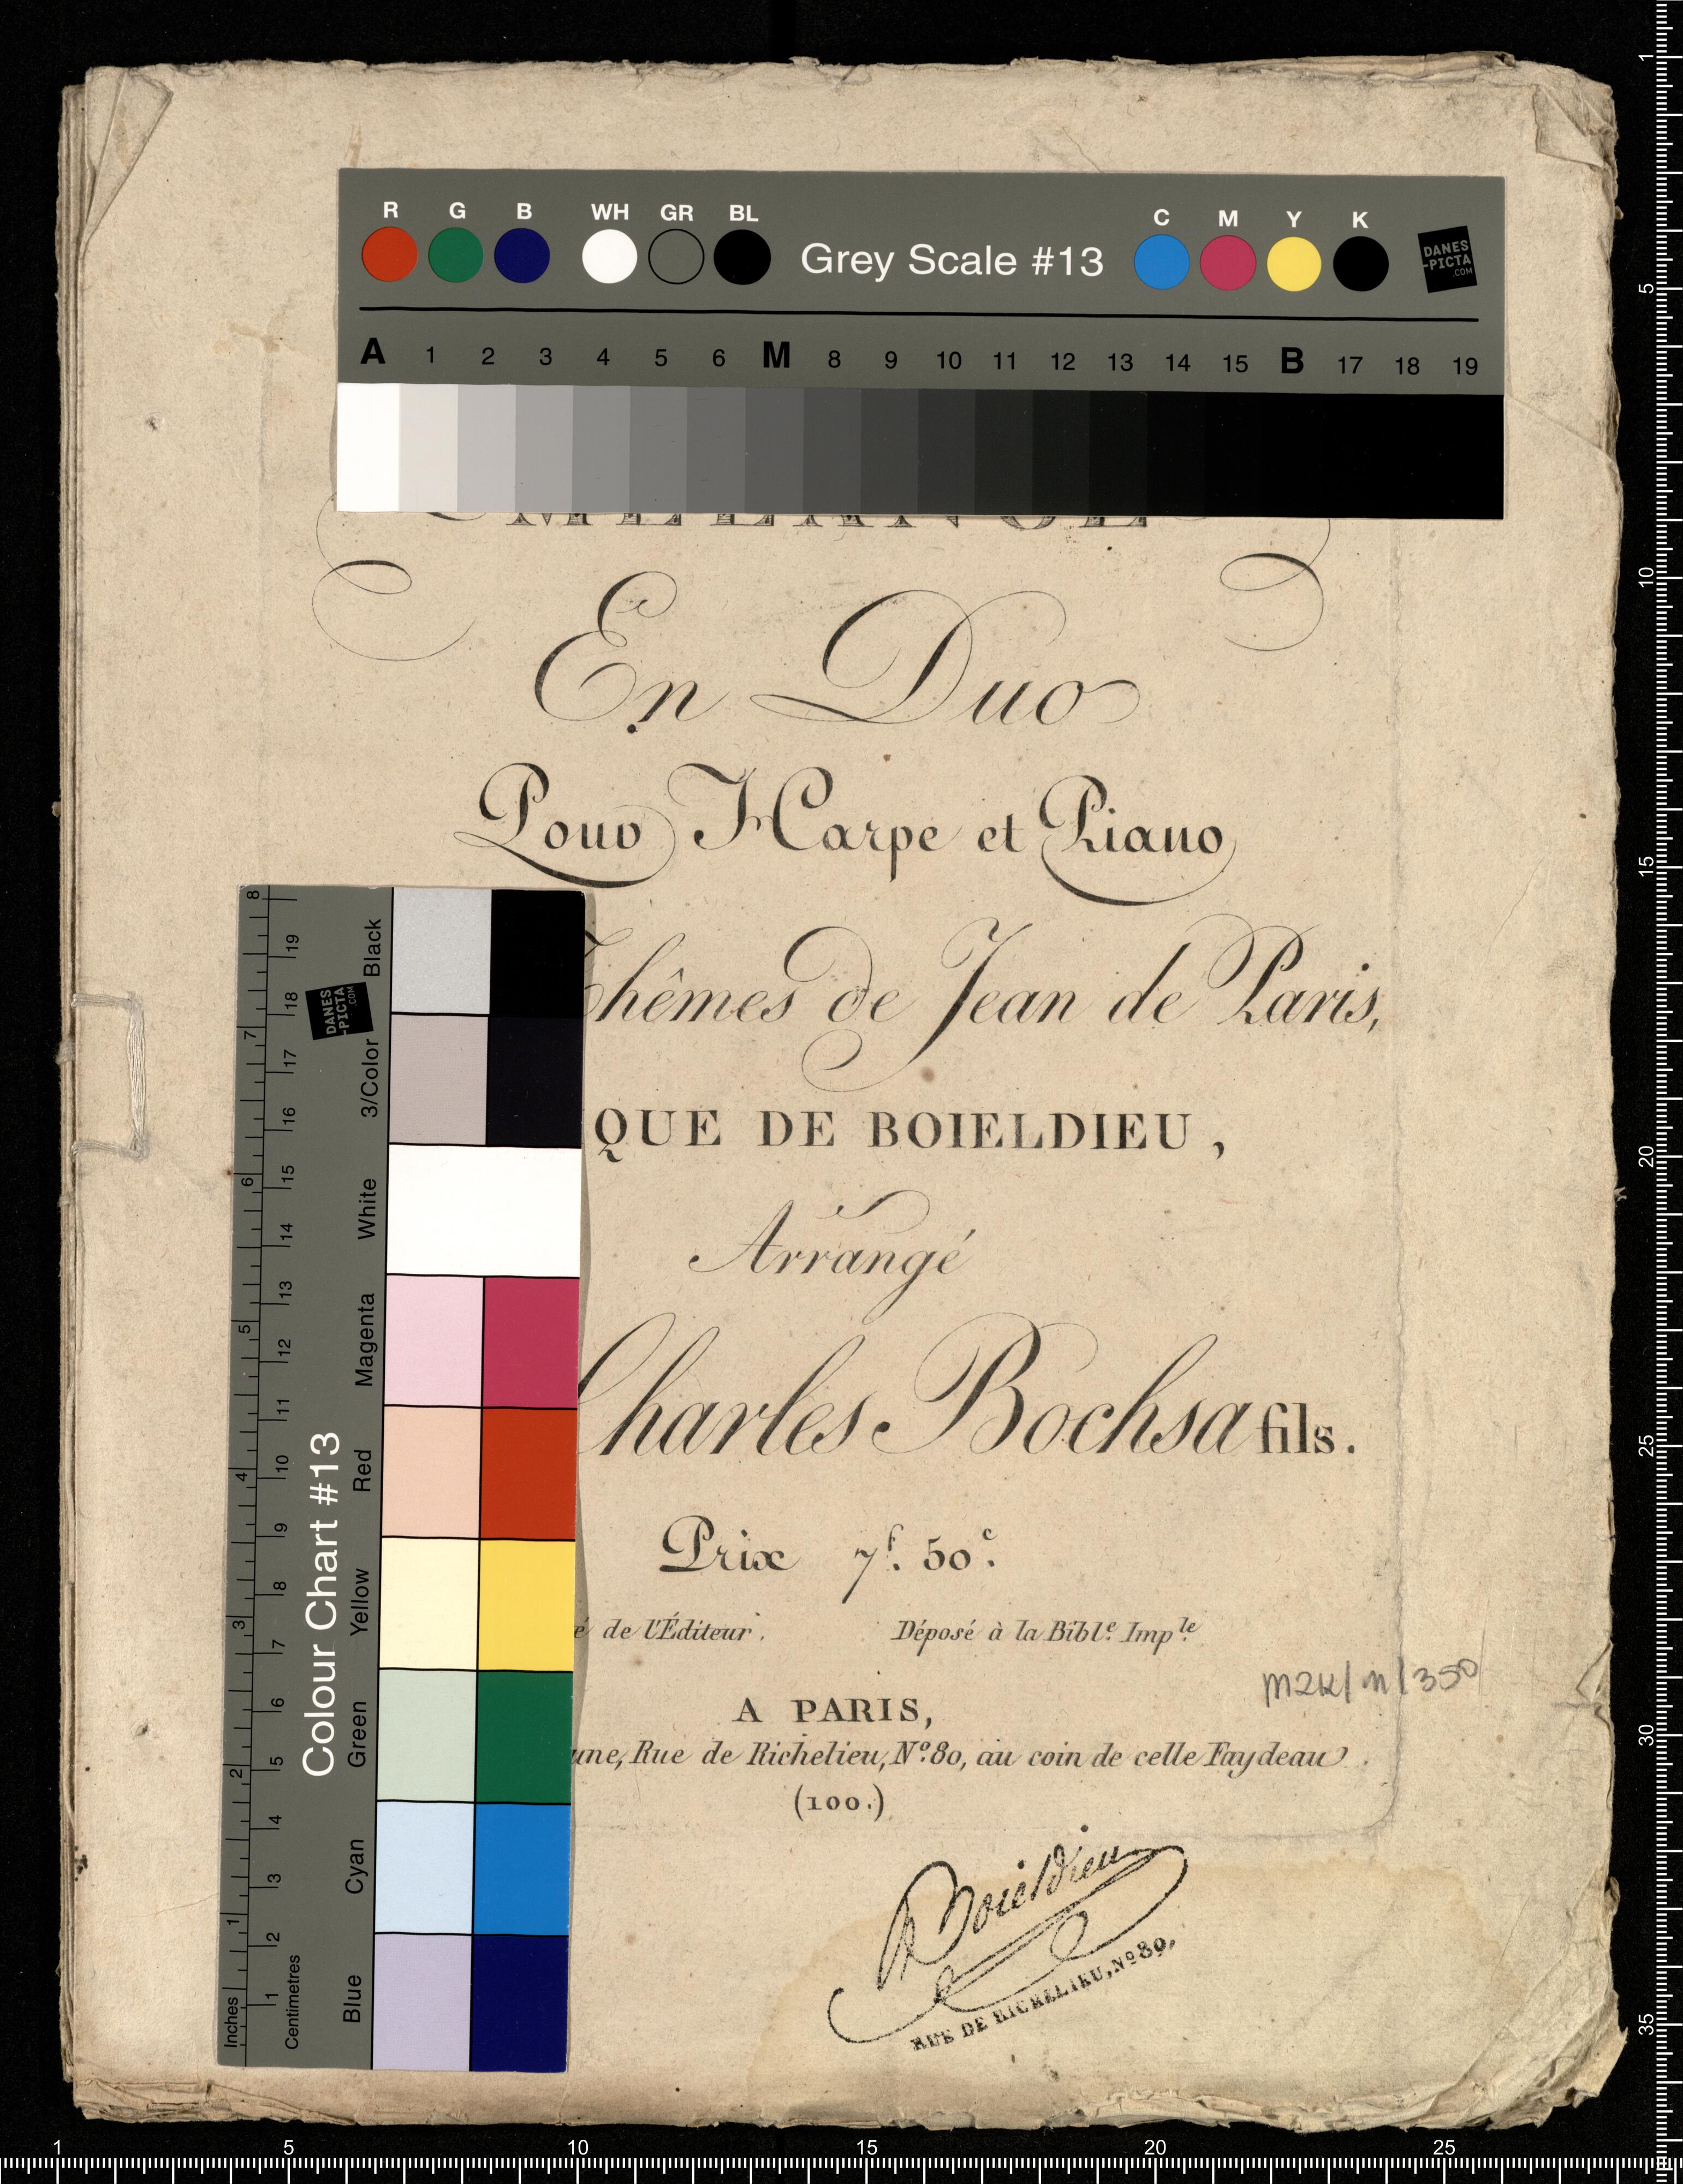 R G B WH GR BL Grey Scale #13 C M Y K DANES-PICTA.COM
A 1 2 3 4 5 6 M 8 9 10 11 12 13 14 15 B 17 18 19
MÉLANGE
En Duo
Pour Harpe et Piano
Thêmes de Jean de Paris,
QUE DE BOIELDIEU,
Arrangé
Charles Bochsa fils.
Prix 7f. 50c.
é de l'Éditeur. Déposé à la Bible. Imple.
A PARIS,
une, Rue de Richelieu, No. 80, au coin de celle Faydeau.
(100.)
M2K/M/350
Boieldieu
RUE DE RICHELIEU, No 80.
Colour Chart #13
Blue Cyan Green Yellow Red Magenta White 3/Color Black
DANES-PICTA.COM
Inches 1 2 3 4 5 6 7 8
Centimetres 1 2 3 4 5 6 7 8 9 10 11 12 13 14 15 16 17 18 19
1 5 10 15 20 25 30 35
1 5 10 15 20 25